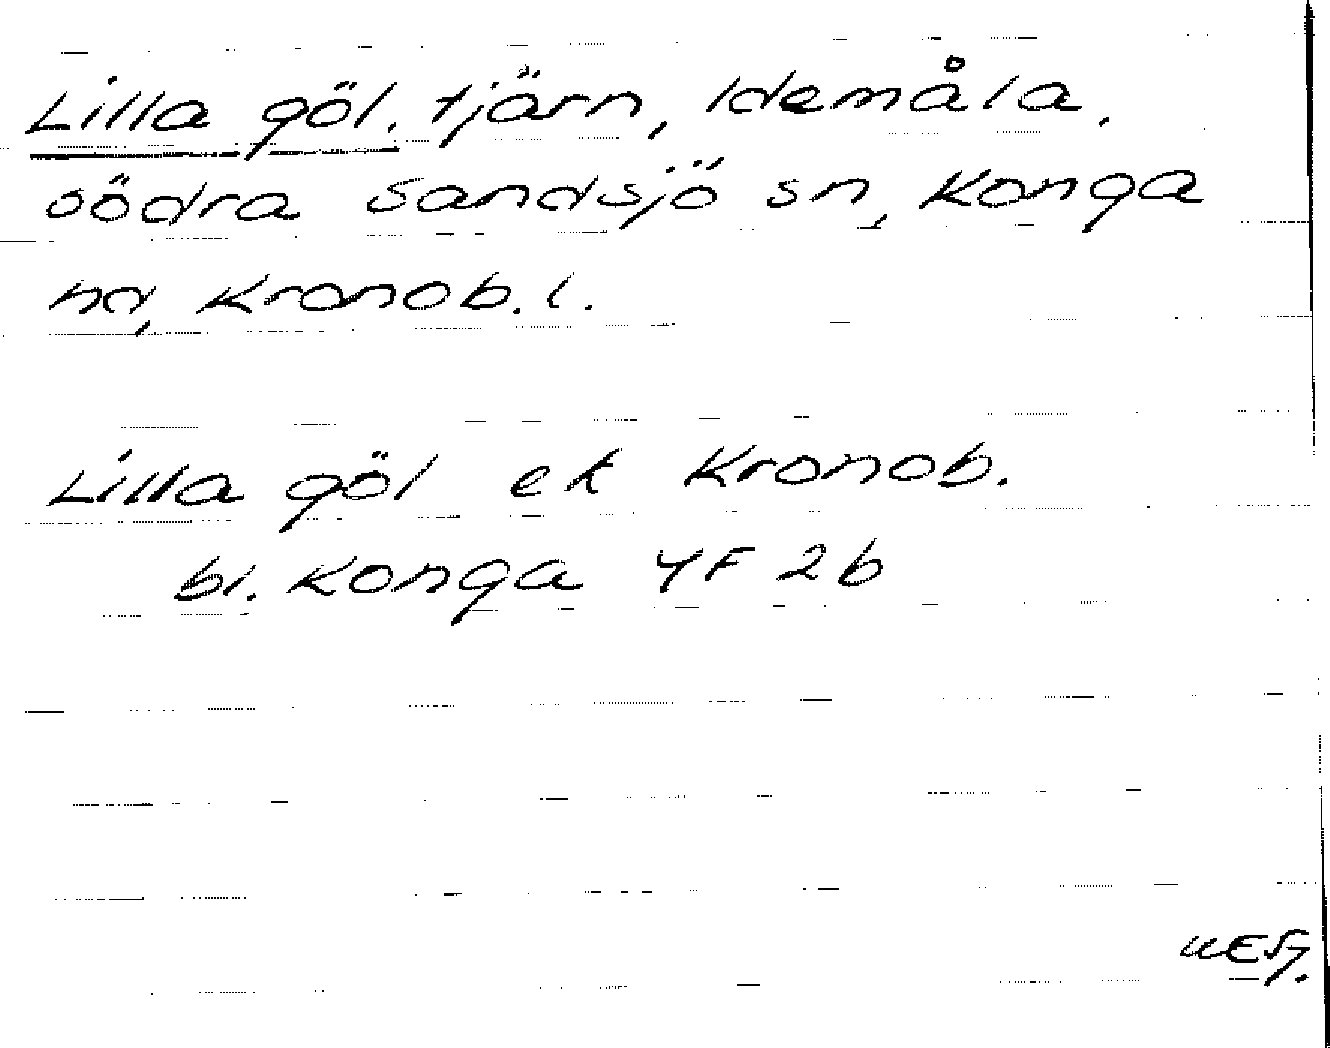 Lilla göl, tjärn, Idemåla,
södra Sandsjö sn, Konga
hd, Kronob. l.
Lilla göl ek Kronob.
bl. Konga 4F 2b